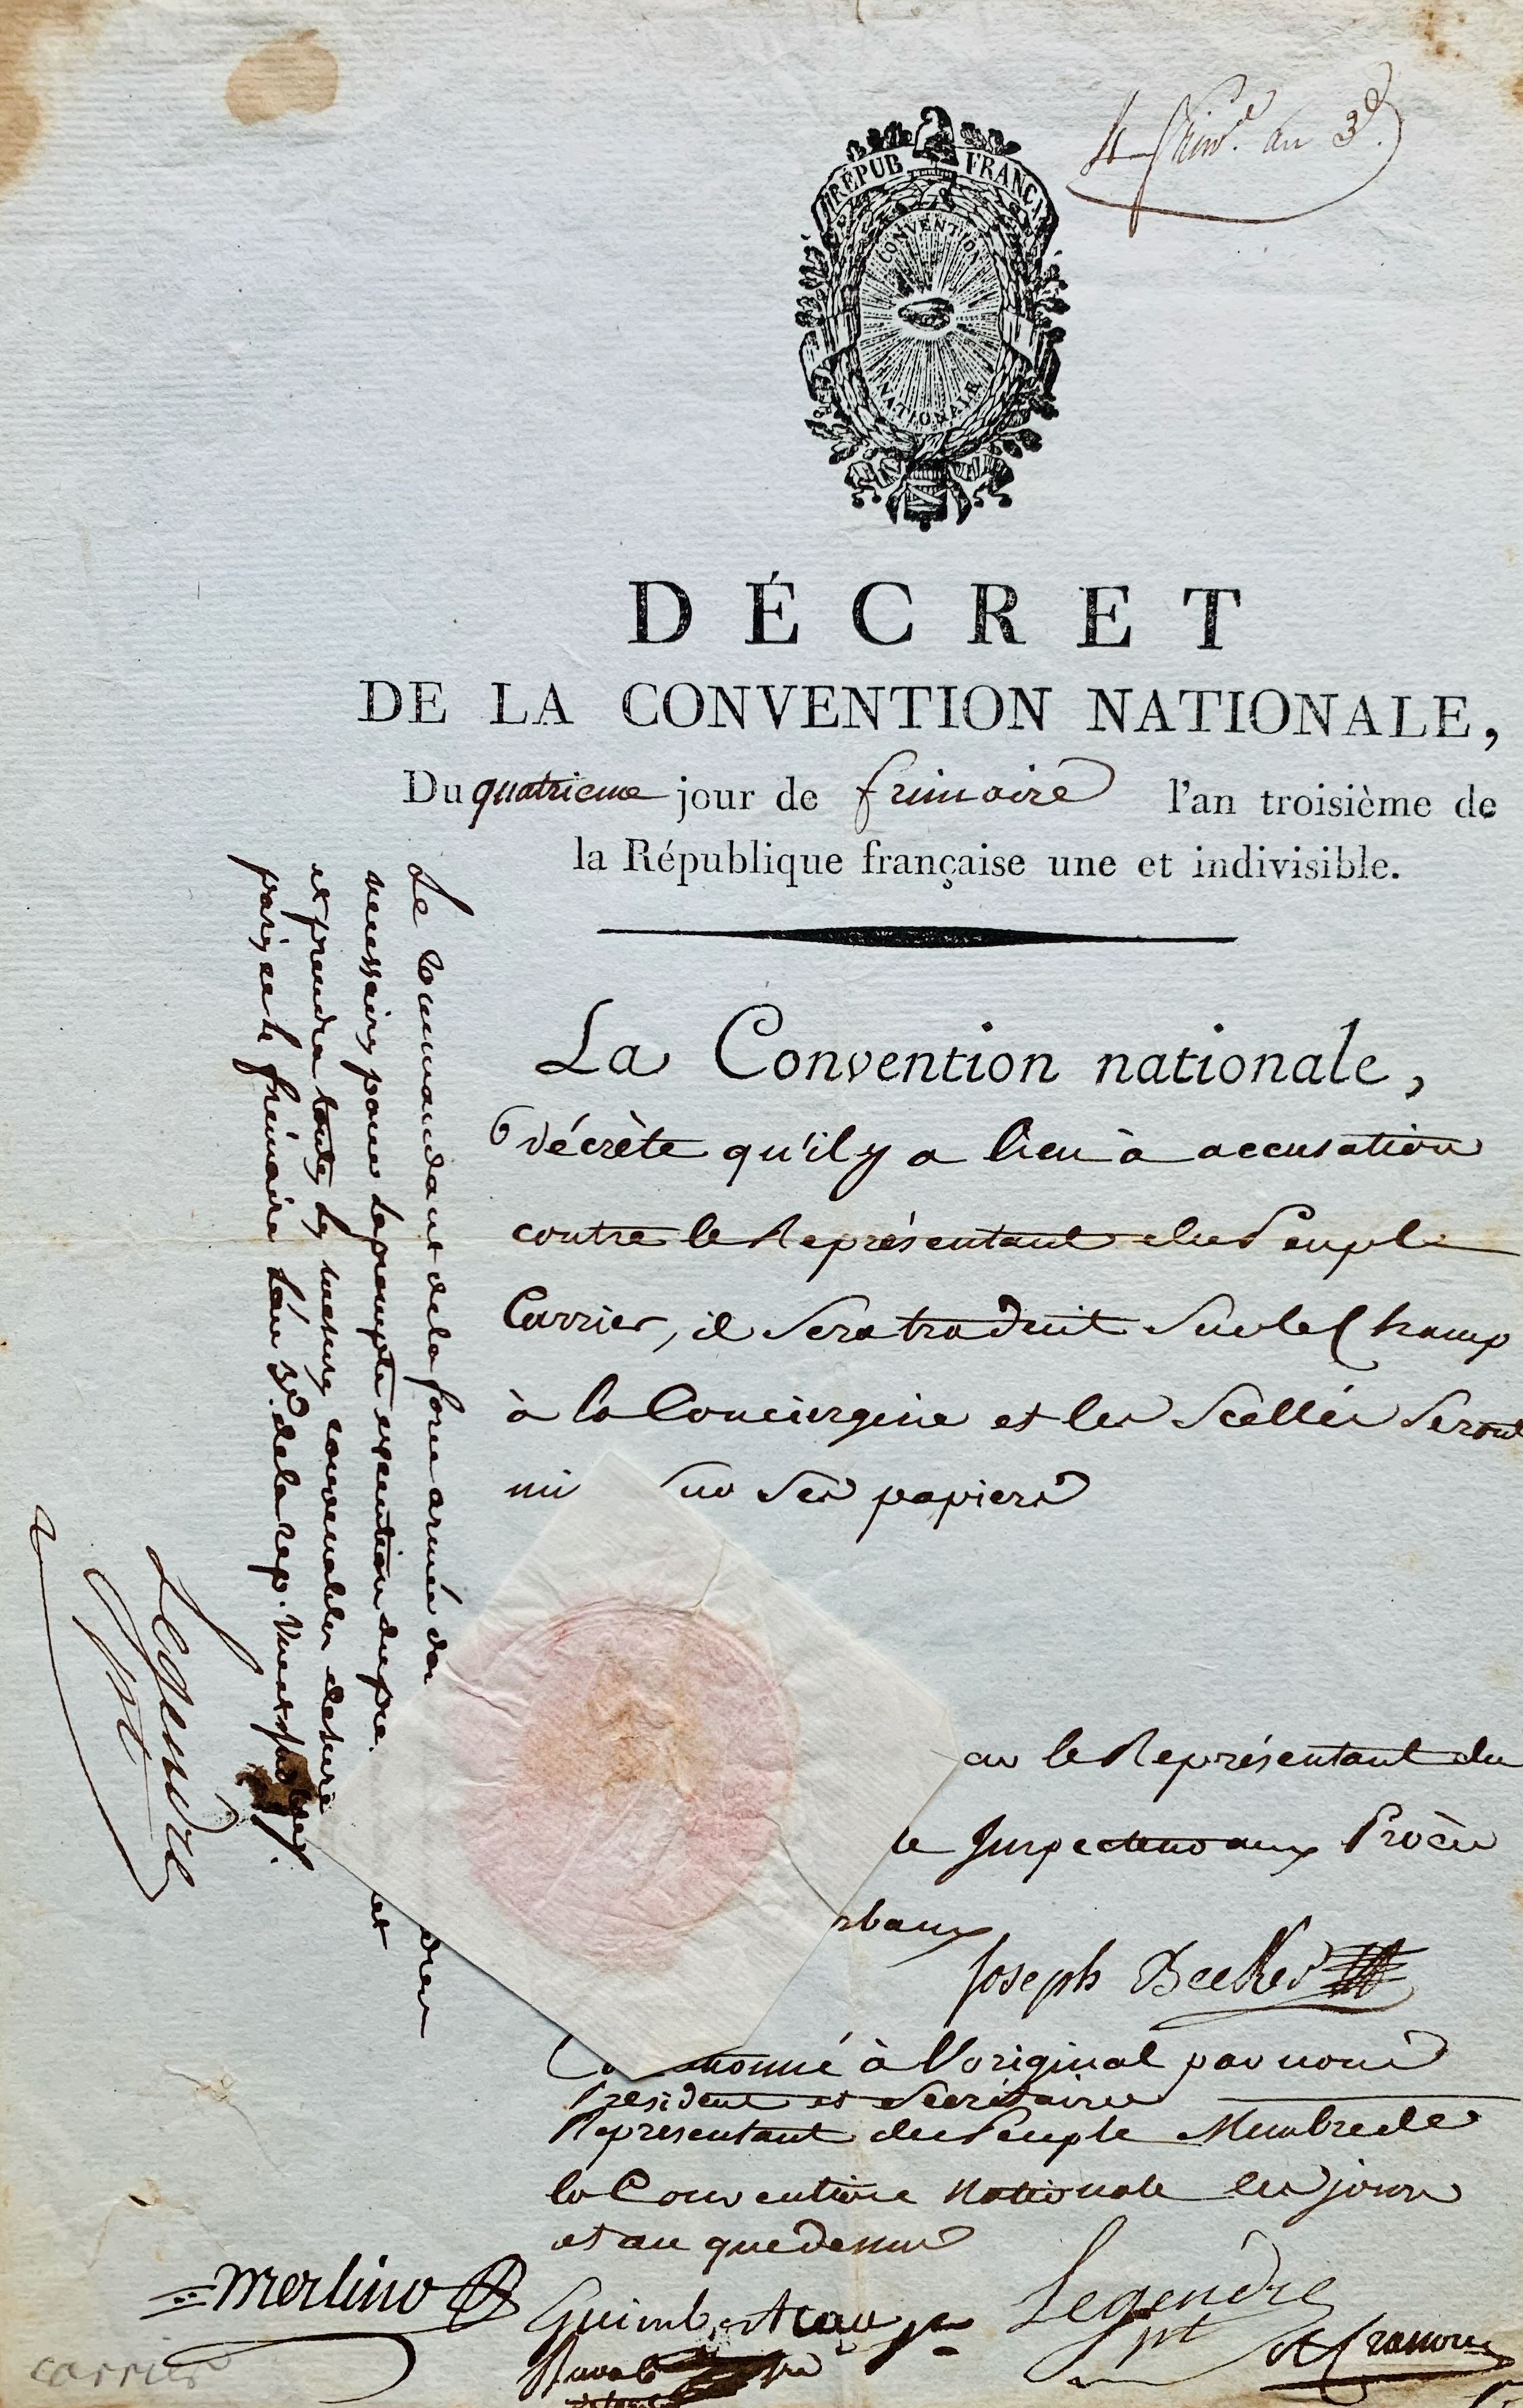 4 frim.e an 3e.
RÉPUB FRANÇX
CONVENTION
NATIONALE
DÉCRET
DE LA CONVENTION NATIONALE,
Du quatrieme jour de frimaire l'an troisième de
la République française une et indivisible.
La Convention nationale,
décrète qu'il y a lieu à accusation
contre le Représentant du Peuple
Carrier, il sera traduit sur le Champ
à la Conciergerie et les Scellés seront
mi sur ses papiers
Le commandant de la force armée don
necessaires pour la prompte execution du pre
et
et prendra toutes les mesures convenables de sureté
paris ce 4 frimaire L'an 3e. de la rep. Une et
Legendre
pt
ar le Représentant du
le Inspecteur aux Procès
rbaux
Joseph Becker
Co tionné à l'original par nous
President et Secrétaires
Représentant du Peuple Membre de
la Convention Nationale les jours
et an que dessus
Merlino
Guimberteau
Legendre
pt
Duval
carrier